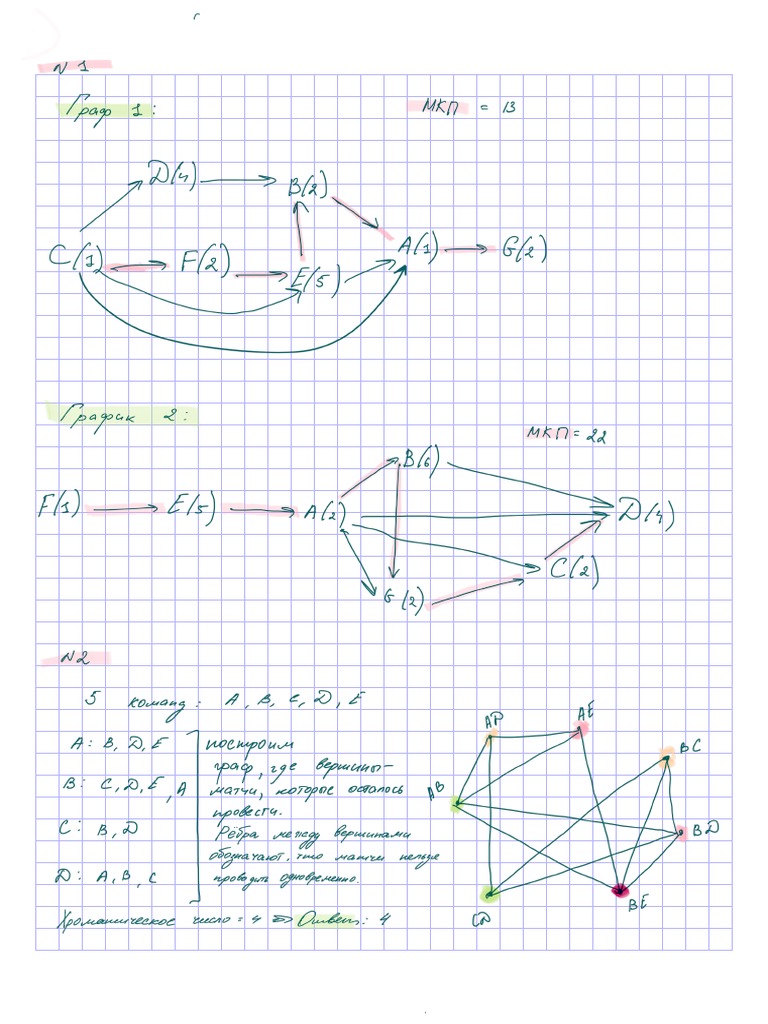 N 1
Граф 1:
МКП = 13
D(4)
B(2)
C(1)
F(2)
E(5)
A(1)
G(2)
График 2:
МКП = 22
B(6)
F(1)
E(5)
A(2)
D(4)
C(2)
G(2)
N2
5 команд: A, B, C, D, E
A: B, D, E
B: C, D, E, A
C: B, D
D: A, B, C
построим
граф, где вершины-
матчи, которые осталось
провести.
Рёбра между вершинами
обозначают, что матчи нельзя
проводить одновременно.
Хроматическое число = 4 => Ответ: 4
AE
BC
AB
BD
BE
CD